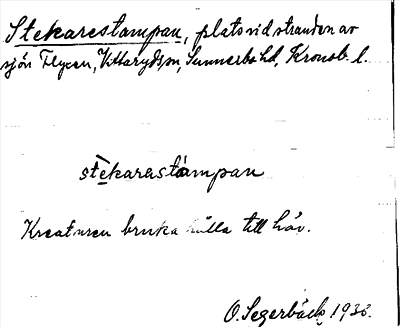 Stekarestampan, plats vid stranden av
sjön Flyen, Vittarydsn, Sunnerbo hd, Kronob. l.
stekarastampan
Kreaturen bruka hålla till här.
O. Segerbäck 1936.